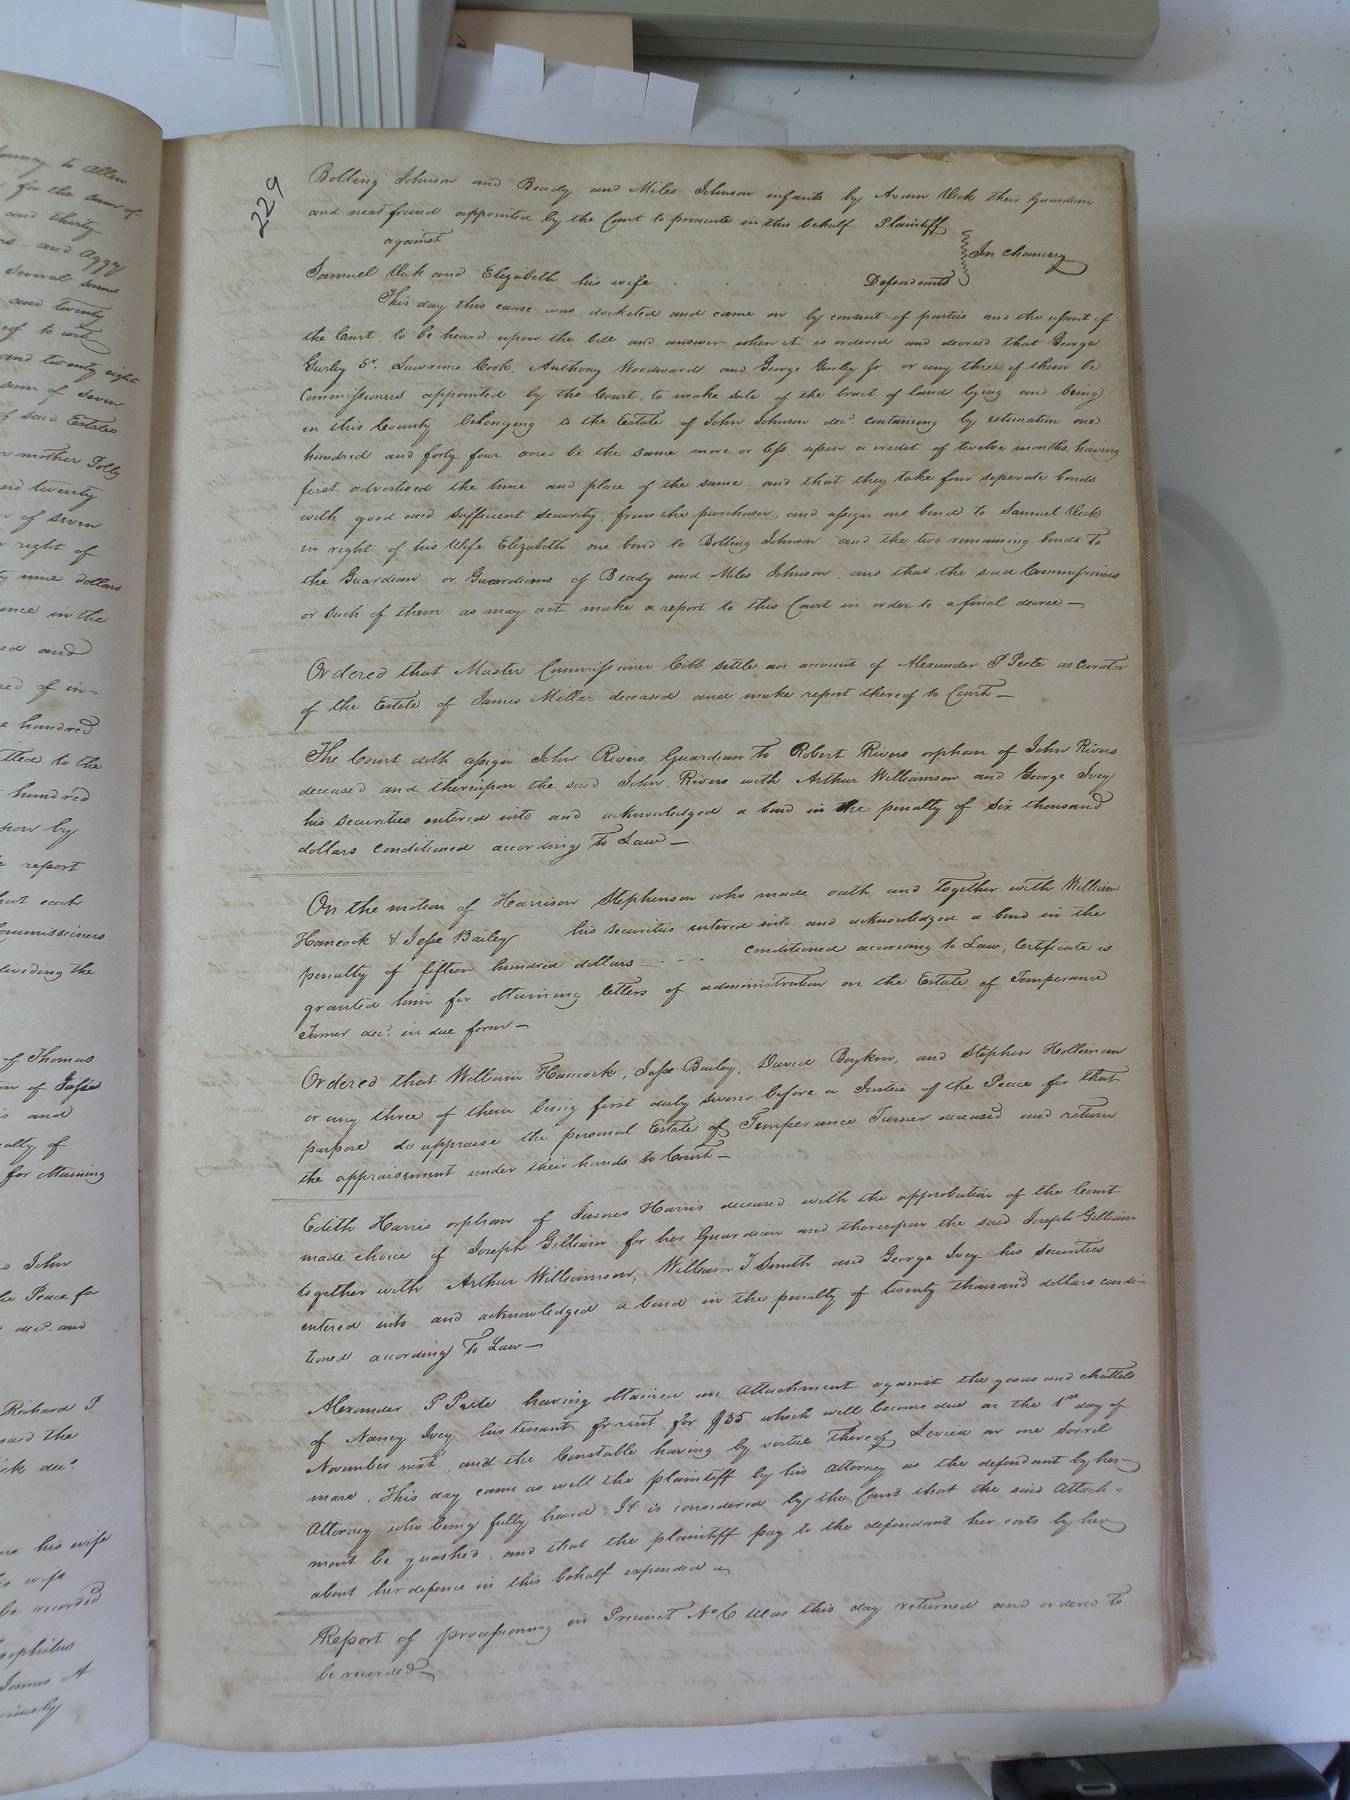 229
Bolling Johnson and Beady and Miles Johnson infants by Axum Vick their Guardian
and next friend appointed by the Court to prosecute in this behalf Plaintiff
against
In Chancery
Samuel Vick and Elizabeth his wife . . . . . Defendants
This day this cause was docketed and came on by consent of parties and the assent of
the Court, to be heard upon the bill and answer when it is ordered and decreed that George
Gurley Sr. Lawrence Cook, Anthony Woodward and George Gurley Jr. or any three of them be
Commissioners appointed by the Court, to make sale of the tract of land lying and being
in this County belonging to the Estate of John Johnson decd. containing by estimation one
hundred and forty four acres be the same more or less upon a credit of twelve months, having
first advertised the time and place of the same, and that they take four seperate bonds
with good and sufficient security from the purchaser, and assign one bond to Samuel Vick
in right of his Wife Elizabeth, one bond to Bolling Johnson and the two remaining bonds to
the Guardian or Guardians of Beady and Miles Johnson, and that the said Commissioners
or such of them as may act make a report to this Court in order to a final decree —
Ordered that Master Commissioner Cobb settle an account of Alexander P Peete as Curator
of the Estate of James Millar deceased and make report thereof to Court —
The Court doth assign John Rivers Guardian to Robert Rivers orphan of John Rivers
deceased and thereupon the said John Rivers with Arthur Williamson and George Ivey
his securities entered into and acknowledged a bond in the penalty of six thousand
dollars conditioned according to Law —
On the motion of Harrison Stephenson who made oath and together with William
Hancock & Jesse Bailey his securities entered into and acknowledged a bond in the
penalty of fifteen hundred dollars — . . . conditioned according to Law, Certificate is
granted him for obtaining letters of administration on the Estate of Temperance
Turner decd. in due form —
Ordered that William Hancock, Jesse Bailey, David Boykin, and Stephen Holleman
or any three of them being first duly sworn before a Justice of the Peace for that
purpose do appraise the personal Estate of Temperance Turner deceased and return
the appraisement under their hands to Court —
Edith Harris orphan of James Harris deceased with the approbation of the Court
made choice of Joseph Gilliam for her Guardian and thereupon the said Joseph Gilliam
together with Arthur Williamson, William T Smith and George Ivey his securities
entered into and acknowledged a bond in the penalty of twenty thousand dollars condi-
tioned according to Law —
Alexander P Peete having obtained an attachment against the goods and chattels
of Nancy Ivey his tenant for rent for $35 which will become due on the 1st day of
November next, and the Constable having by virtue thereof levied on one sorrel
mare. This day came as well the plaintiff by his attorney as the defendant by her
Attorney who being fully heard. It is considered by the Court that the said attach-
ment be quashed, and that the plaintiff pay to the defendant her costs by her
about her defence in this behalf expended
Report of processioning in Precinct No 6 was this day returned and ordered to
be recorded —